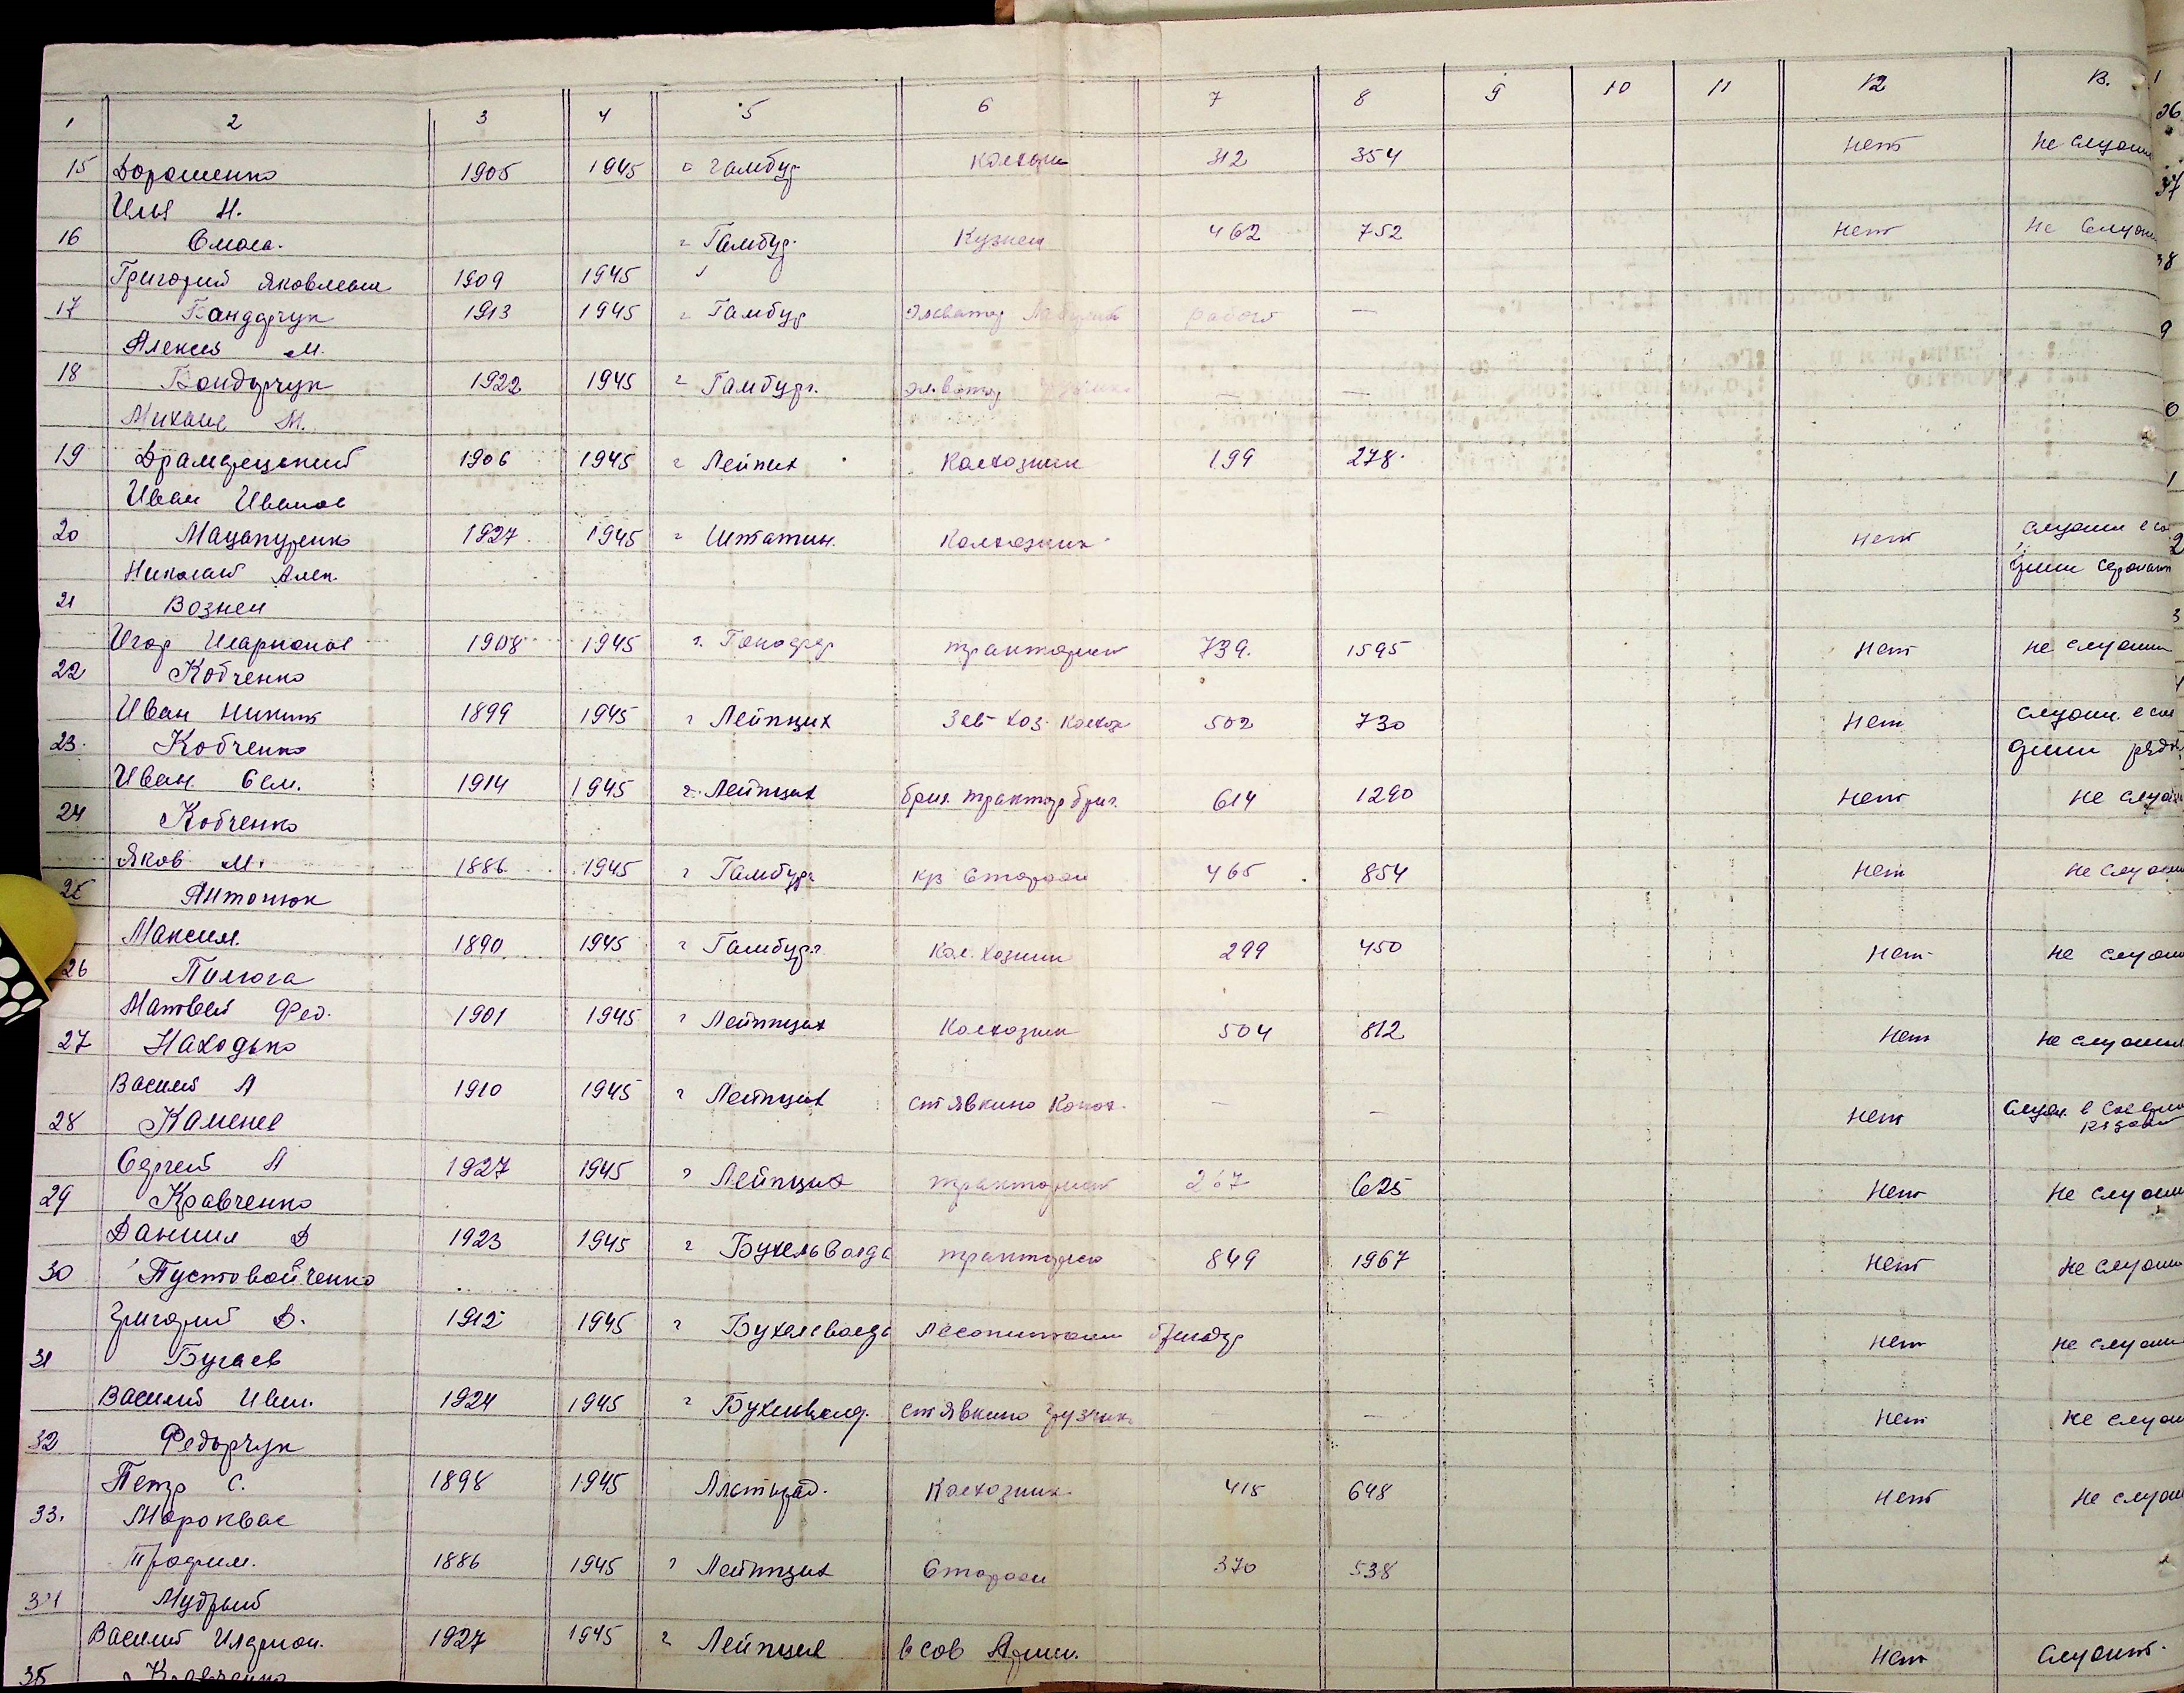 1 2 3 4 5 6 7 8 9 10 11 12 13.
15 Дорошенко 1905 1945 г Гамбург Колхозн 312 354 Нет Не служил
Илья Н.
16 Смола. г Гамбург Кузнец 462 752 Нет Не Служил
Григорий Яковлевич 1909 1945
17 Бандарчук 1913 1945 г Гамбург рабоч —
Алексей М.
18 Бондарчук 1922 1945 г Гамбург. — —
Михаил М.
19 1906 1945 г Лейпих Колхозник 199 278
Иван Иванов
20 Мацапуренко 1927 1945 г Штатин. Колхозник Нет служил в сов
Николай Алек. армии сержант
21 Вознен
Игор Иларионов 1908 1945 г. тракторист 739. 1595 Нет не служил
22 Кобченко
Иван Никит 1899 1945 г Лейпциг Зав-хоз. колхоз 502 730 Нет служил. в сов
23. Кобченко армии ряд.
Иван. Сем. 1914 1945 г. Лейпциг бриг. трактор бриг. 614 1290 Нет Не служил
24 Кобченко
Яков М. 1886 1945 г Гамбург кз Сторож 465 854 Нет Не служил
25 Антонюк
Максим. 1890 1945 г Гамбург Кол.хозник 299 450 Нет Не служил
26 Пилюга
Матвей Фед. 1901 1945 г Лейпциг Колхозник 504 812 Нет Не служил
27 Находько
Василий А 1910 1945 г Лейпциг ст Явкино — — Нет Служ. в Сов
28 Каменев рядовой
Сергей А 1927 1945 г Лейпциг тракторист 267 625 Нет Не служил
29 Кравченко
Даниил Д 1923 1945 г Бухельвальд тракторист 849 1967 Нет Не служил
30 Пустовойченко
Григорий Д. 1912 1945 г Бухенвальд Лесопитомн бригадир Нет Не служил
31 Бугаев
Василий Иван. 1924 1945 г Бухенвальд. ст Явкино грузчик — Нет Не служил
32 Федорчук
Петр С. 1898 1945 Колхозник 415 648 Нет Не служил
33. Мороквас
Трофим. 1886 1945 г Лейпциг Сторож 370 538
34 Мудрый
Василий Иларион. 1927 1945 г Лейпциг в сов Армии. Нет Служит.
35 Кравченко